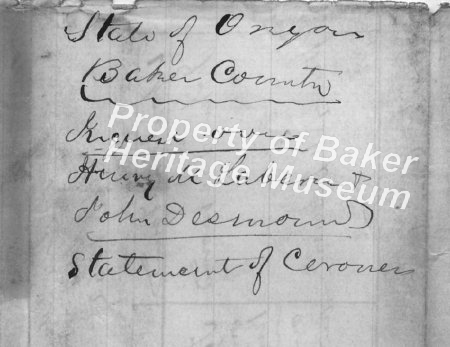 State of Oregon
Baker County
Property of Baker
Heritage Museum
Inquest over
Henry
John Desmound
Statement of Coroner